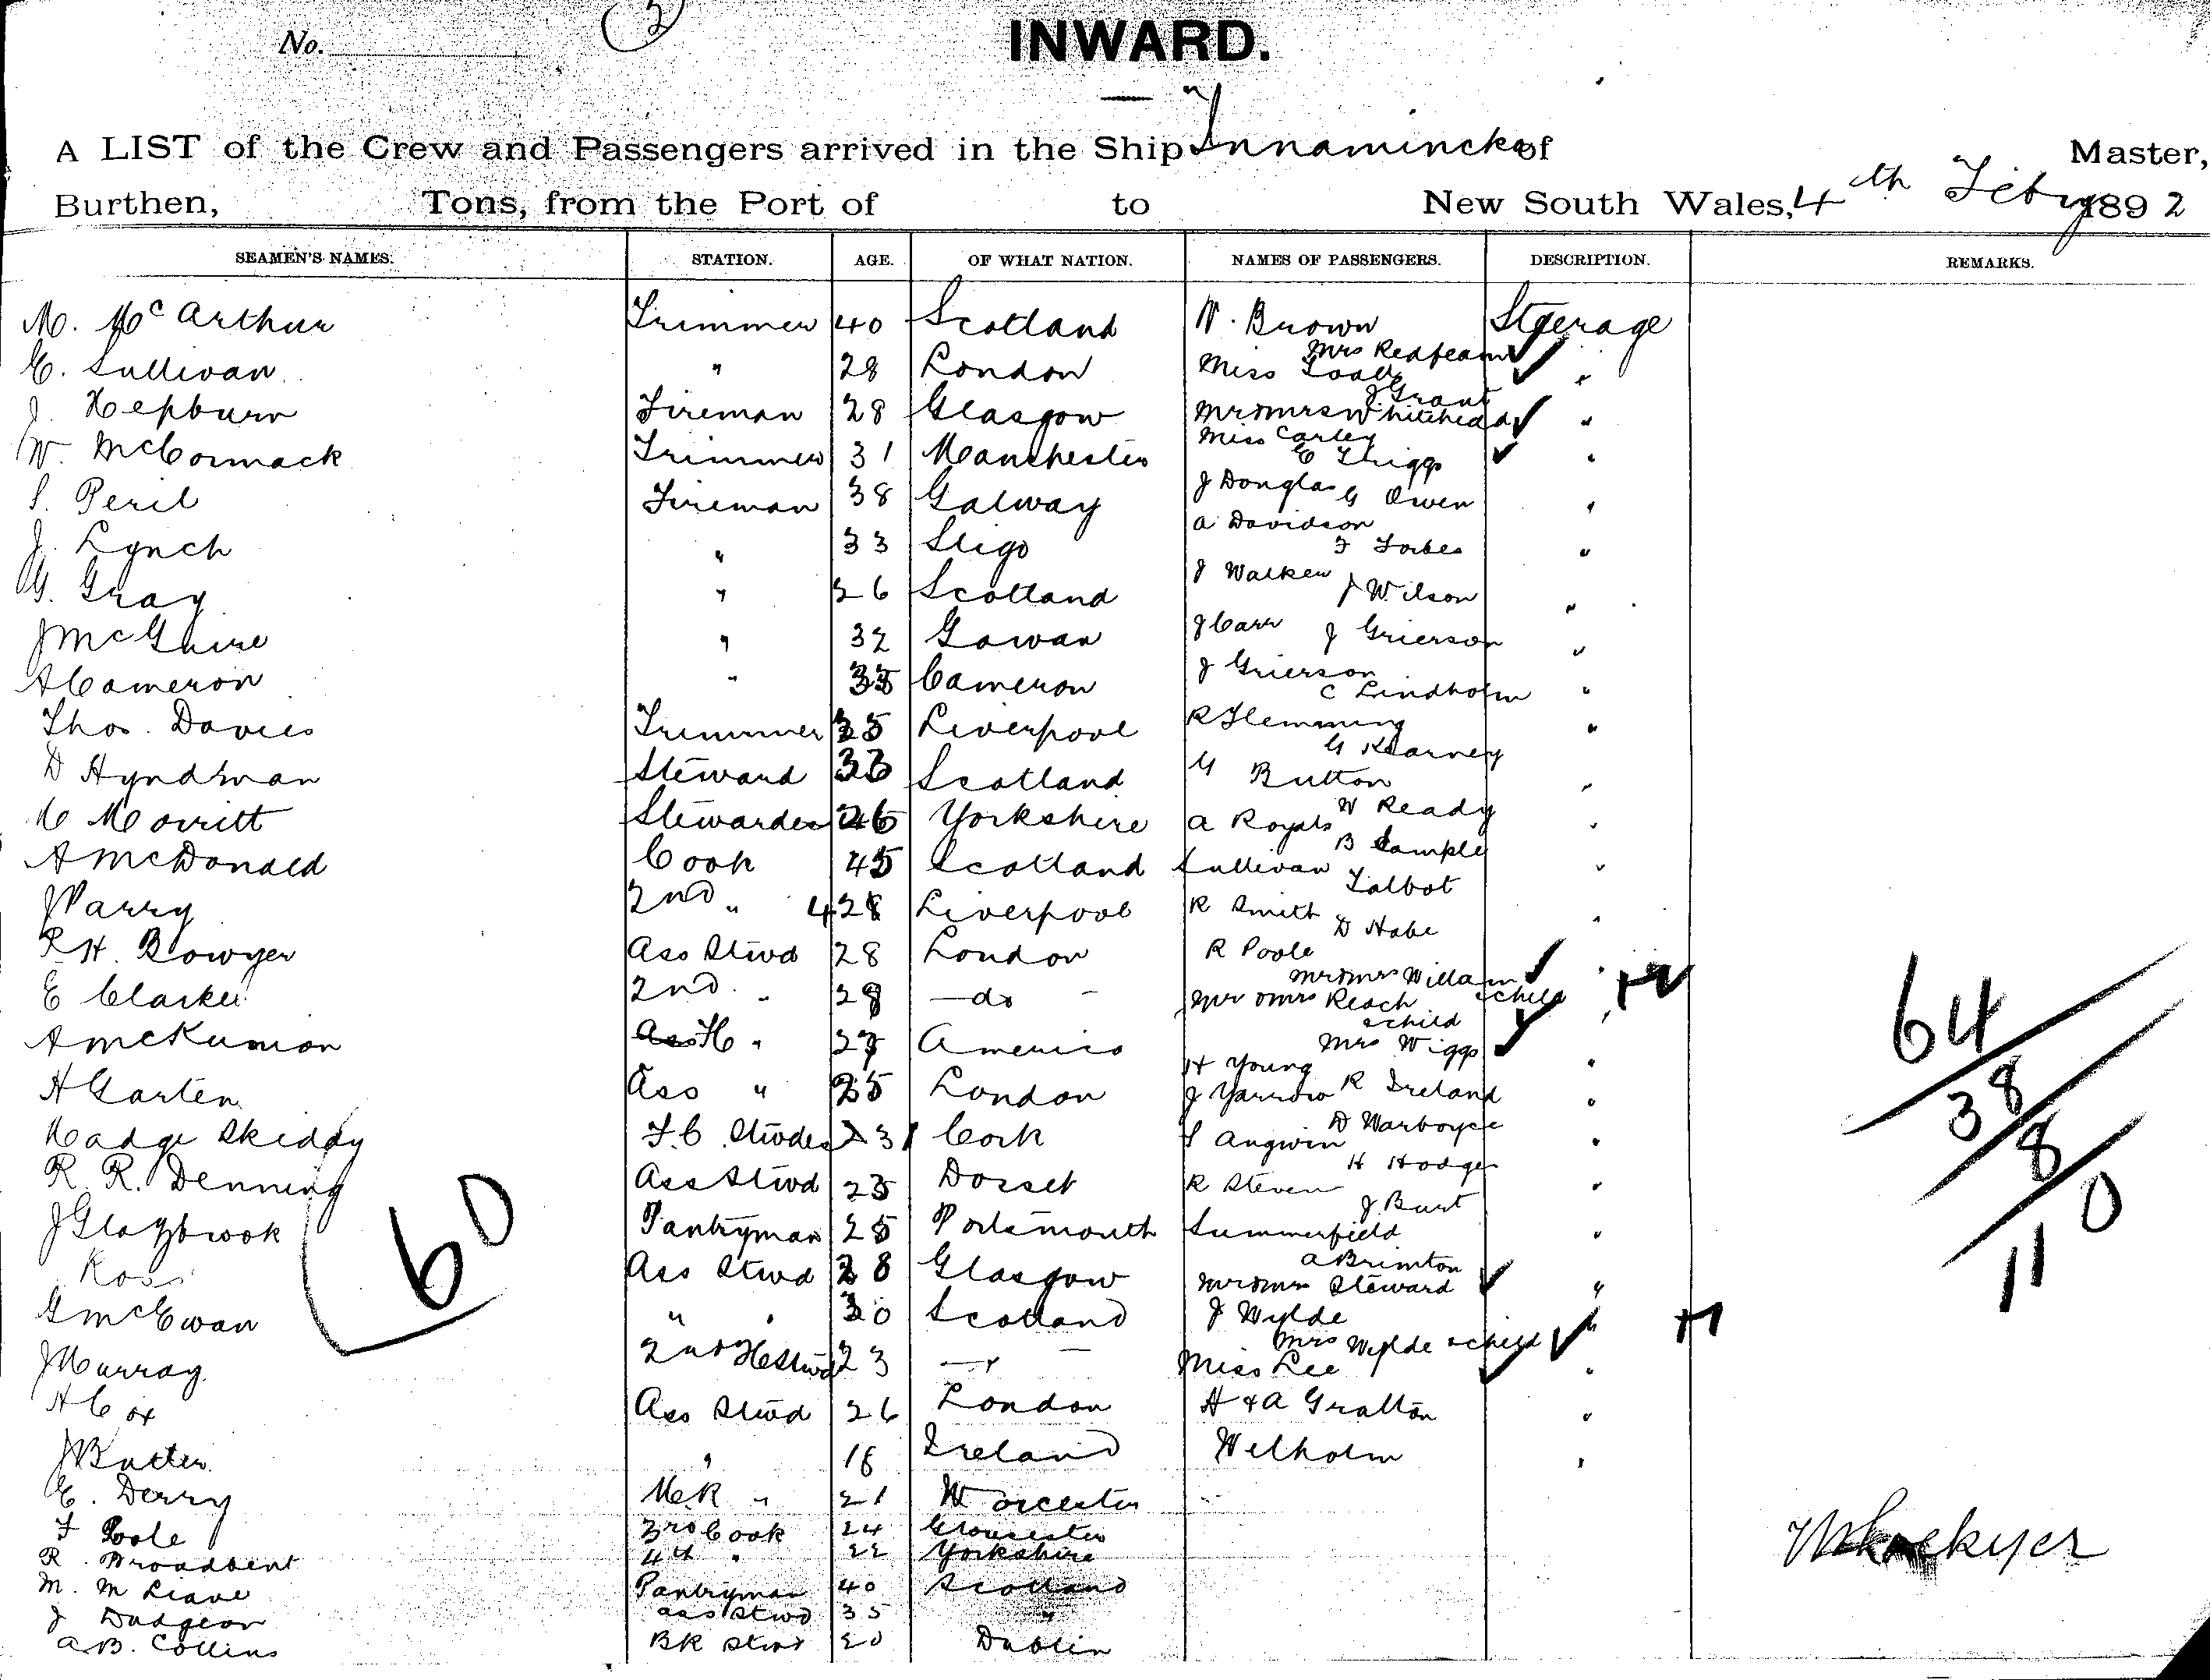 No. (3)
INWARD.
A LIST of the Crew and Passengers arrived in the Ship Innamincka of Master,
Burthen, Tons, from the Port of to New South Wales, 4th Feby 1892
SEAMEN'S NAMES. STATION. AGE. OF WHAT NATION. NAMES OF PASSENGERS. DESCRIPTION. REMARKS.
M. McArthur Trimmer 40 Scotland W. Brown Steerage
Mrs Redfearn
E. Sullivan " 28 London Miss "
J Grant
J. Hepburn Fireman 28 Glasgow Mr & Mrs Whitehead "
Miss Carley
W. McCormack Trimmer 31 Manchester E Griggs "
S. Peril Fireman 38 Galway J Douglas G Owen "
A Davidson
J. Lynch " 33 Sligo F Forbes "
G. Gray " 26 Scotland J Walker J Wilson "
J McGuire " 32 Gowan J Carr J Grierson "
A Cameron " 35 Cameron J Grierson C Lindholm "
Thos. Davies Trimmer 35 Liverpool R Flemming "
G Kearney
D Hyndman Steward 33 Scotland G Button "
W Ready
M Morritt Stewardess 26 Yorkshire A Royals B Sample "
A McDonald Cook 45 Scotland Sullivan Talbot "
J Parry 2nd " 28 Liverpool R Smith D Habe "
R H. Bowyer Ass Stwd 28 London R Poole "
Mr & Mrs Willam & child
E Clarke 2nd " 28 — do — Mr & Mrs Reach & child "
A McKinnon H " 27 America Mrs Wiggs "
H Young
H Garten Ass " 25 London J Yarrow R Ireland "
D Warboyce
Madge Skiddy F.C. Stwdes 31 Cork S Angwin H Hodge "
R. R. Denning Ass Stwd 25 Dorset R Steven J Burt "
J Glazbrook Pantryman 25 Portsmouth Summerfield "
A Brimton
Ross Ass Stwd 28 Glasgow Mr & Mrs Steward "
G McEwan " " 30 Scotland J Wylde "
Mrs Wylde & child
J Murray 2nd H Stwd 23 — " — Miss Lee "
H Cox Ass Stwd 26 London H & A Gratton "
J Butler " 18 Ireland Welholm "
E. Derry M.R " 21 Worcester
F Poole 3rd Cook 24 Gloucester
R. Broadbent 4th " 22 Yorkshire
M. M Leave Pantryman 40 Scotland
J Dudgeon Ass Stwd 35 "
A.B. Collins BK Stwd 20 Dublin
60
64
38
8
110